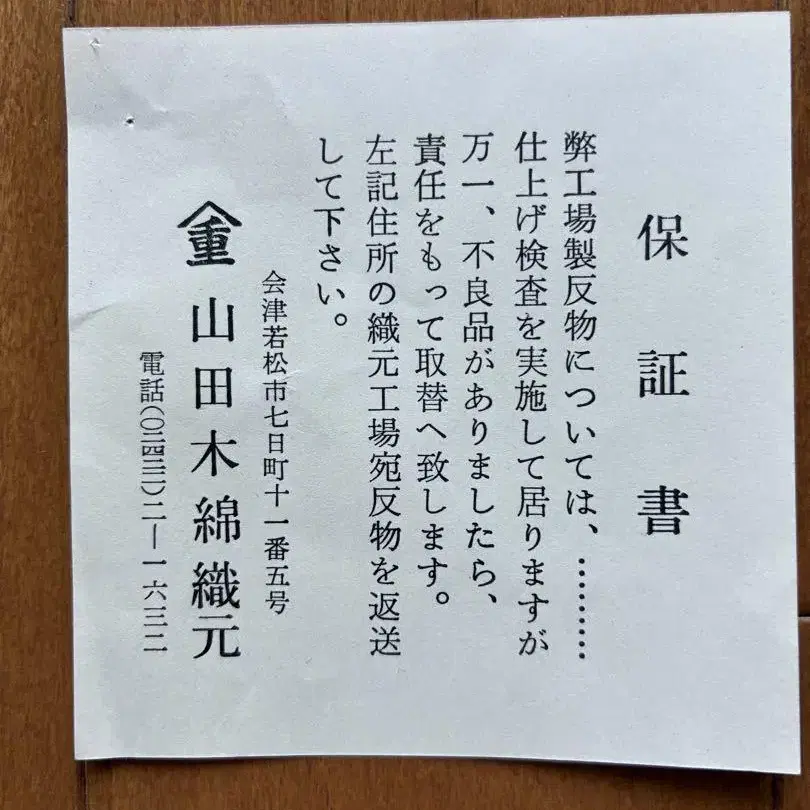 保証書
弊工場製反物については、………
仕上げ検査を実施して居りますが
万一、不良品がありましたら、
責任をもって取替へ致します。
左記住所の織元工場宛反物を返送
して下さい。
会津若松市七日町十一番五号
重 山田木綿織元
電話(〇二四二)二―一六三二